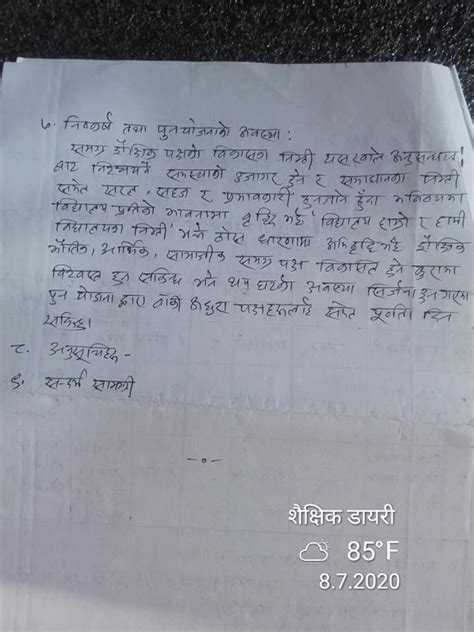 ७. निष्कर्ष तथा पुनयोजनाको अवस्था :
समग्र शैक्षिक पक्षको विकासका निम्ती यसखाले अनुसन्धान
बाट निश्चयनै समस्याको उजागर हुने र समाधानका निम्ती
समेत सरल, सहज र प्रभावकारी हुनजाने हुँदा भविष्यमा
विद्यालय प्रतिको भावनामा वृद्धि भई विद्यालय हाम्रो र हामी
विद्यालयका निम्ती भन्ने ठोस धारणामा अभिवृद्धि भई शैक्षिक
भौतिक, आर्थिक, सामाजीक समग्र पक्ष विकासित हुने कुरामा
विश्वस्त हुन सकिन्छ भने थप घटीको अवस्था सिर्जना हुन गएमा
पुन योजना द्वारा बाँकी अधुरा पक्षहरूलाई समेत पूर्णता दिन
सकिन्छ।
८. अनुसूचिहरू -
९. सन्दर्भ सामग्री
-०-
शैक्षिक डायरी
85°F
8.7.2020